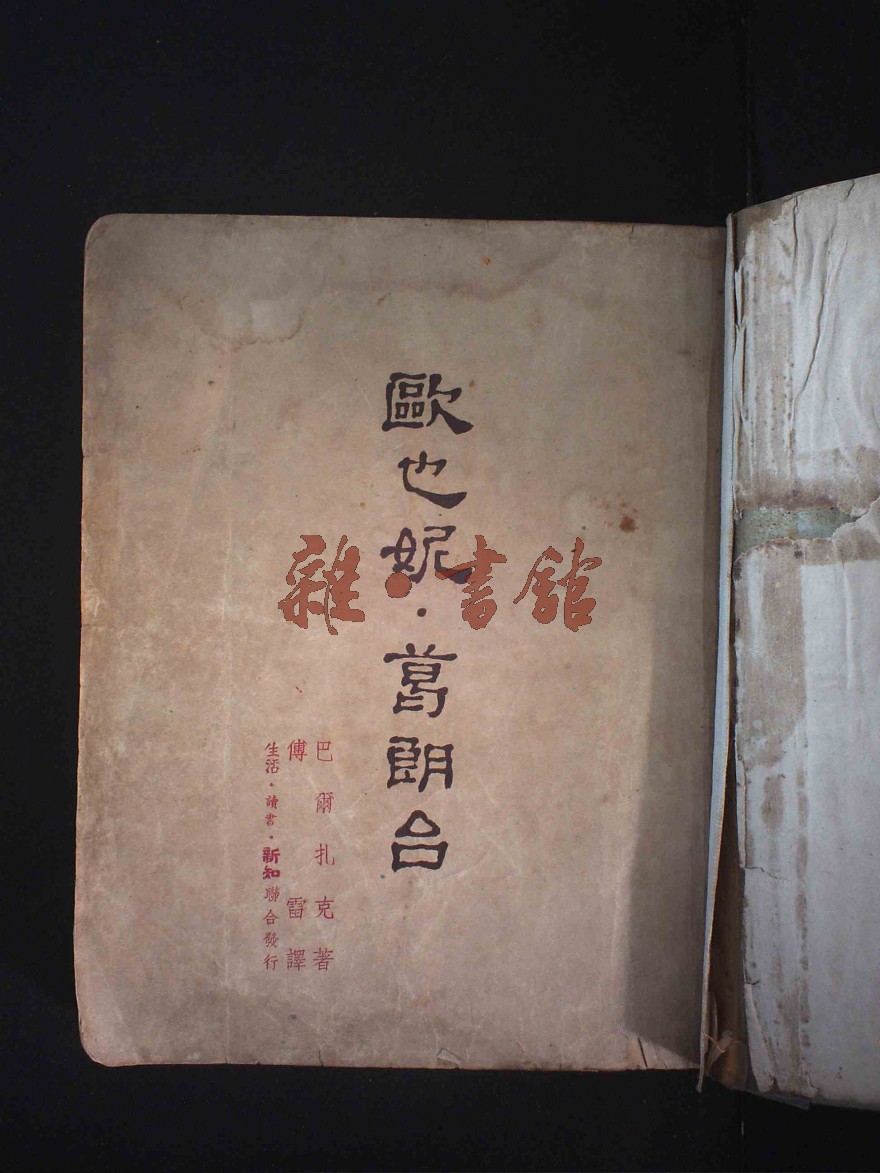 歐也妮·葛朗台
巴爾扎克著
傅雷譯
生活·讀書·新知聯合發行
雜·書館